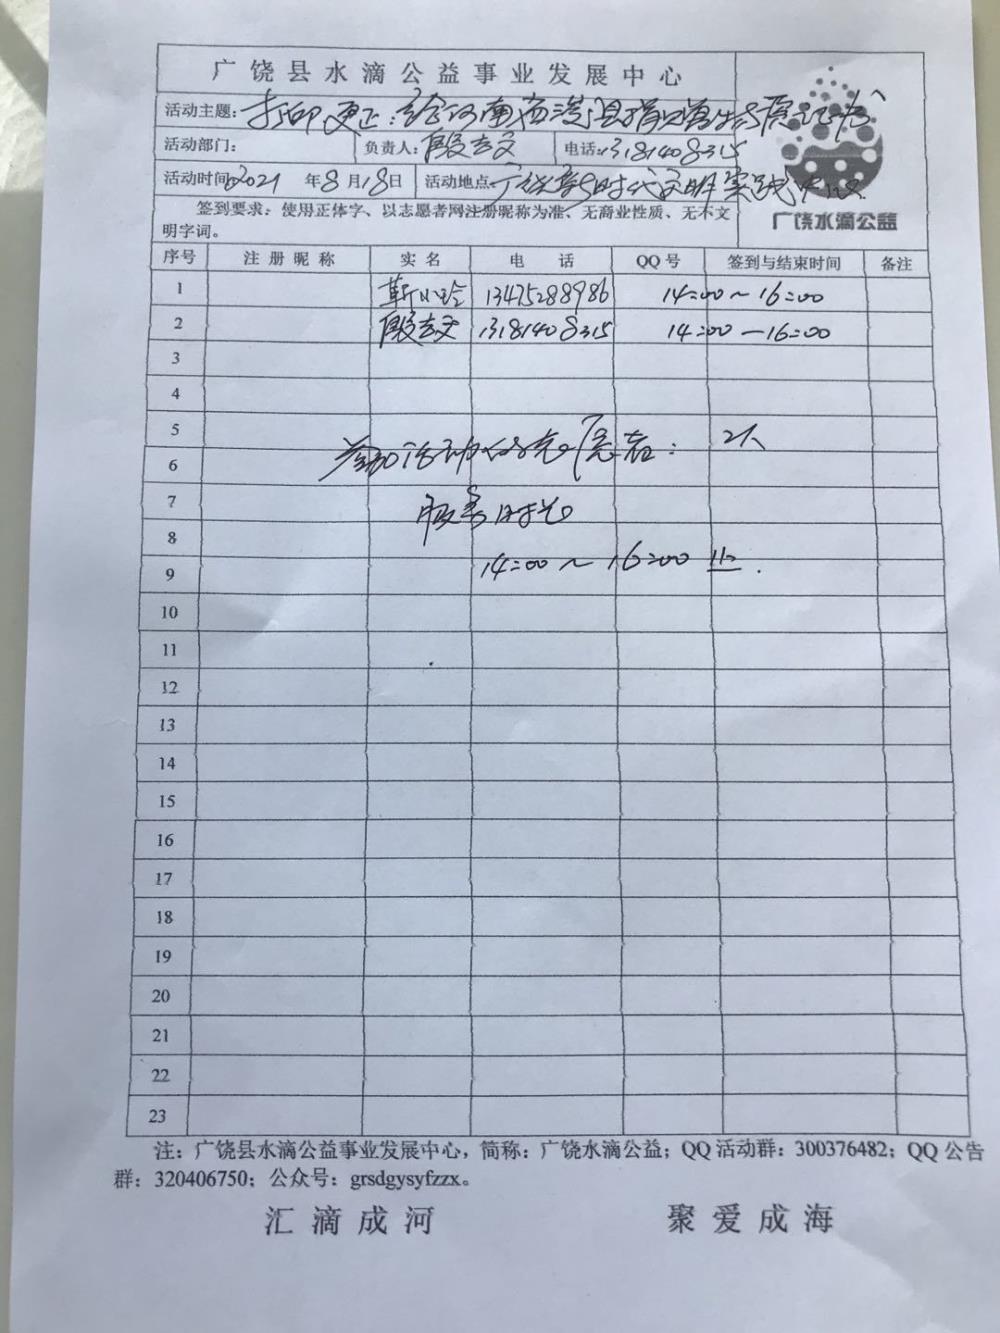 广饶县水滴公益事业发展中心
活动主题: 打印更正: 给河南 县捐赠
活动部门: 负责人: 殷志文 电话: 13181408315
活动时间 2021 年 8 月 18 日 活动地点 广饶新时代文明实践中心
签到要求: 使用正体字、以志愿者网注册昵称为准、无商业性质、无不文
明字词。
广饶水滴公益
序号 注册昵称 实名 电话 QQ号 签到与结束时间 备注
1 靳心玲 13475288986 14:00~16:00
2 殷志文 13181408315 14:00—16:00
3
4
5
参加活动的志愿者: 2人
6
7
服务时长
8
14:00~16:00 止.
9
10
11
12
13
14
15
16
17
18
19
20
21
22
23
注: 广饶县水滴公益事业发展中心, 简称: 广饶水滴公益; QQ活动群: 300376482; QQ公告
群: 320406750; 公众号: grsdgysyfzzx。
汇滴成河 聚爱成海